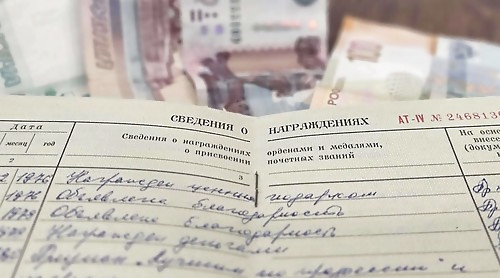 РОС
СВЕДЕНИЯ О НАГРАЖДЕНИЯХ
АТ-IV № 246813
Дата
месяц год
Сведения о награждениях орденами и медалями,
о присвоении почетных званий
На осно
внесе
(докум
2 3
2 1976 Награжден ценным подарком
1976 Объявлена благодарность
1978 Объявлена благодарность
Награжден деньгами
Признан "Лучшим по профессии" и